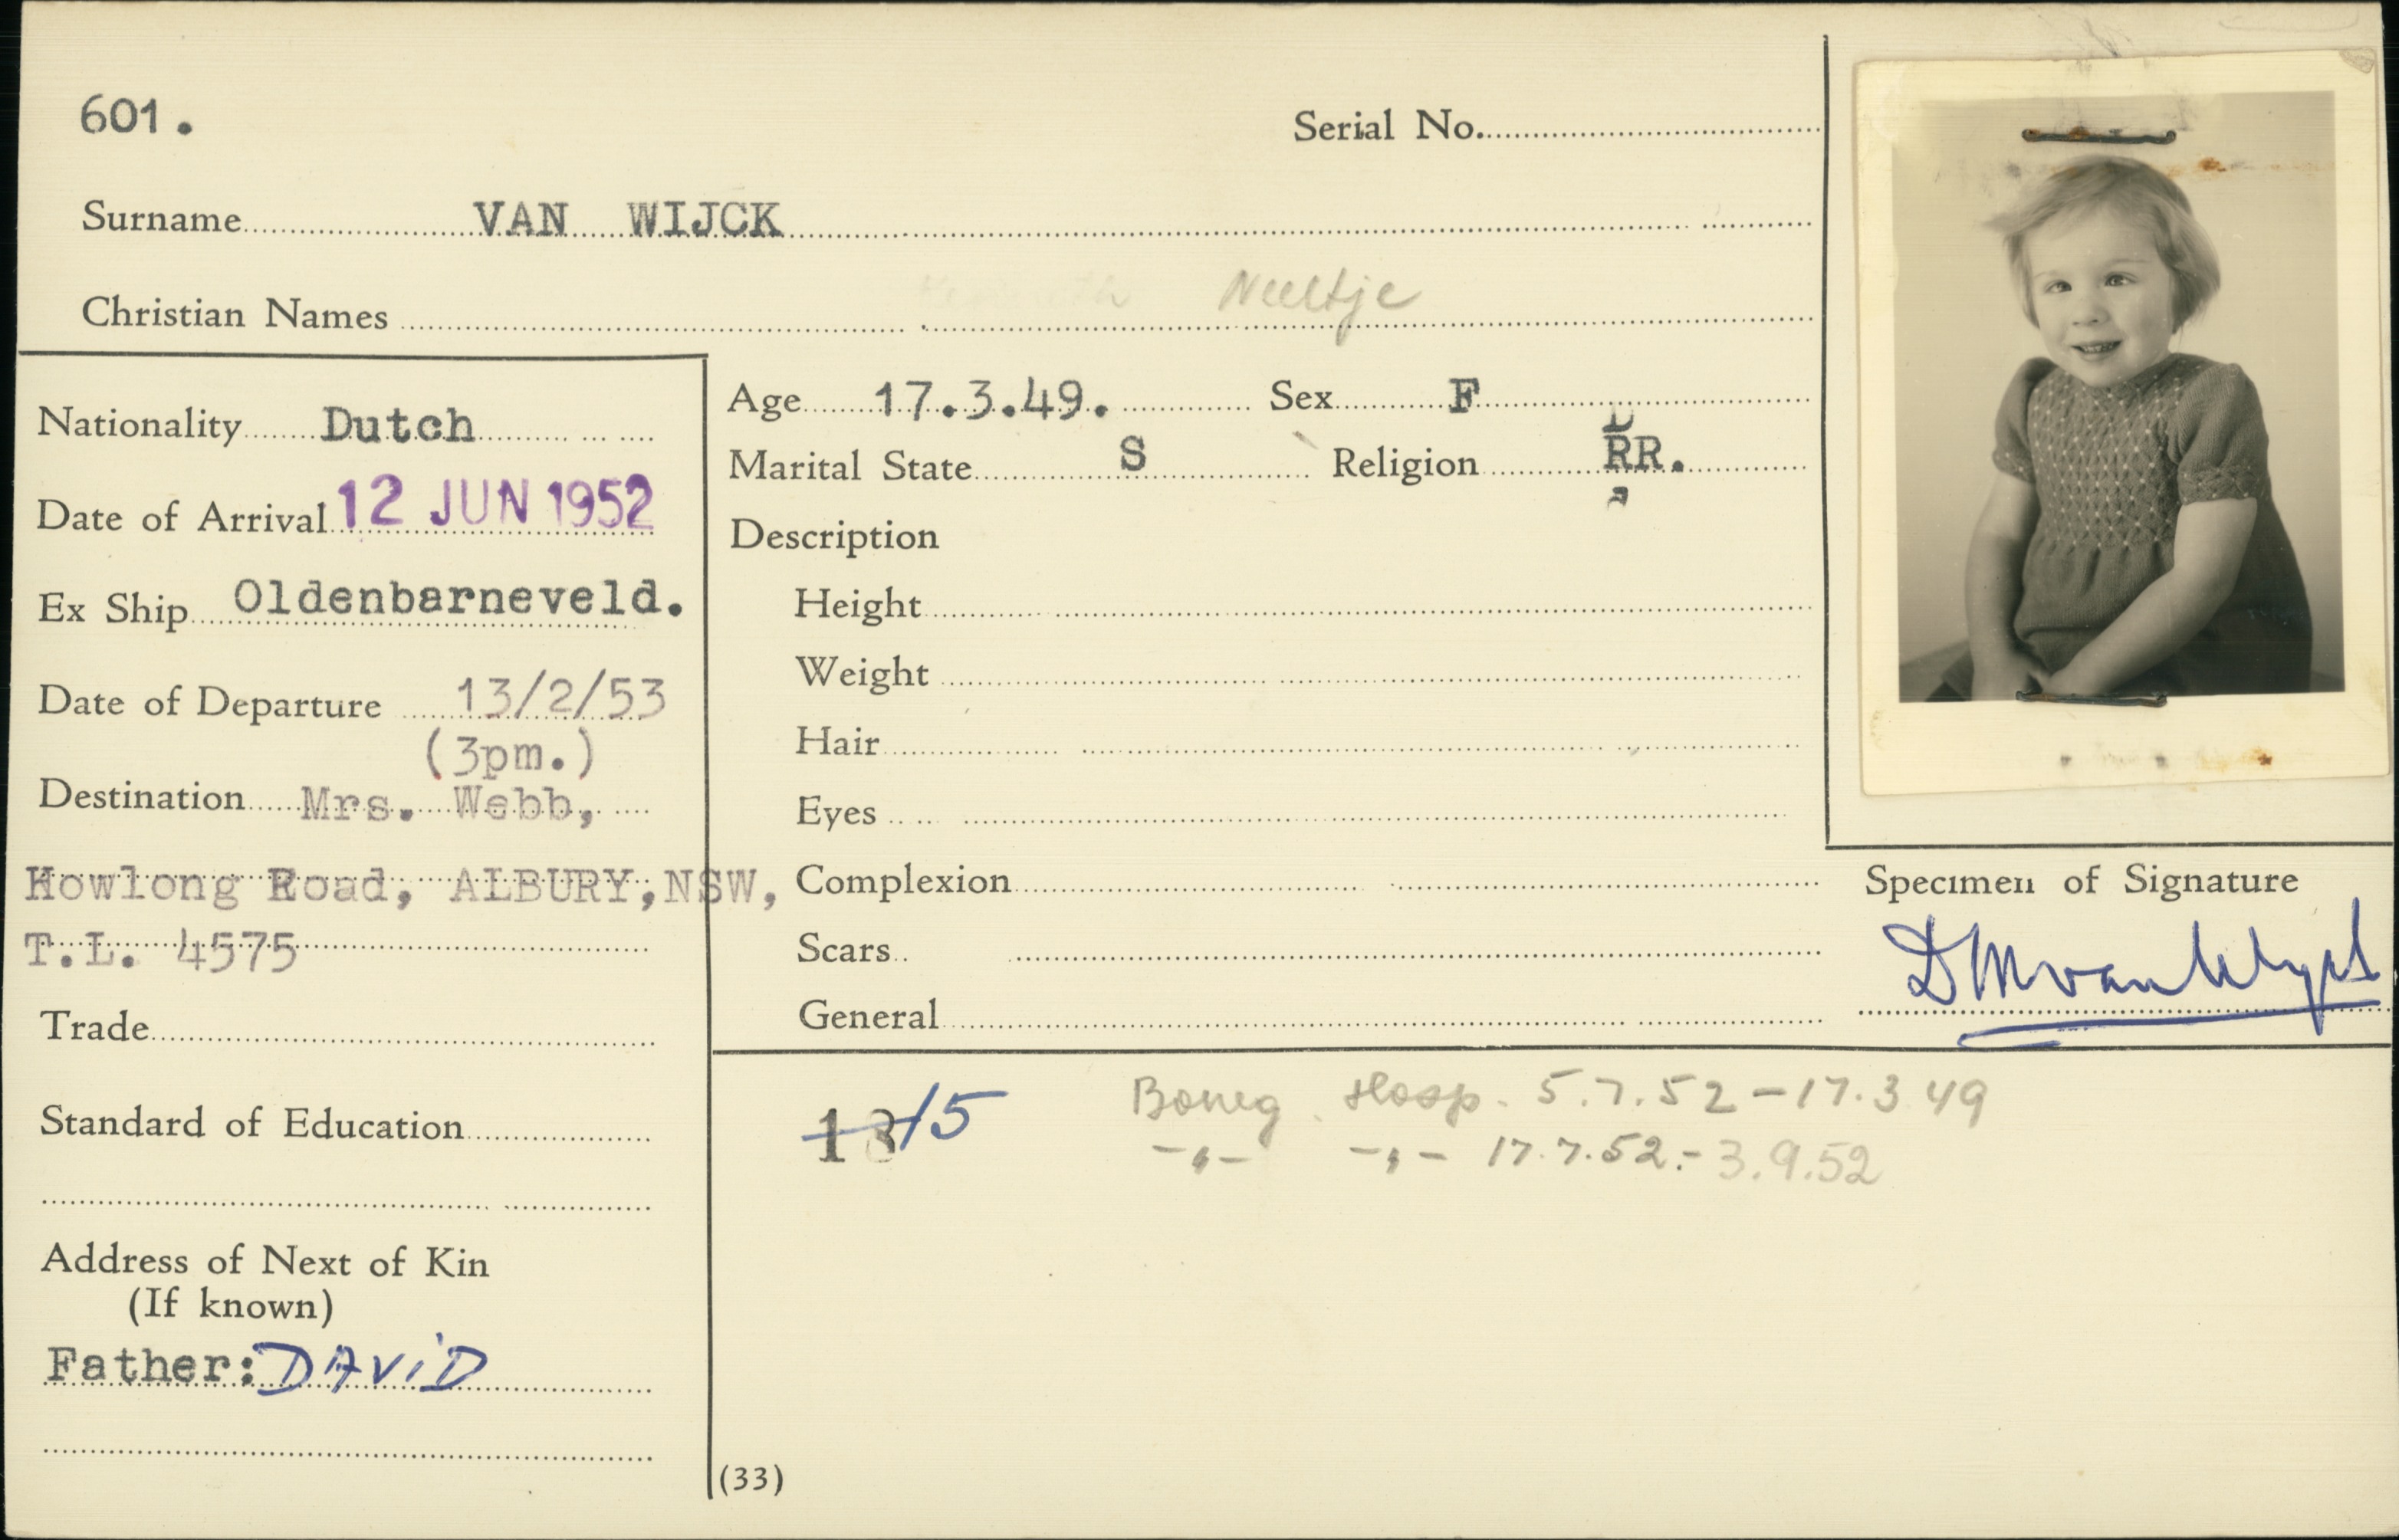 601.
Serial No.
Surname VAN WIJCK
Christian Names Neeltje
Nationality Dutch
Date of Arrival 12 JUN 1952
Ex Ship Oldenbarneveld.
Date of Departure 13/2/53
(3pm.)
Destination Mrs. Webb,
Howlong Road, ALBURY, NSW,
T.L. 4575
Trade
Standard of Education
Address of Next of Kin
(If known)
Father: DAViD
Age 17.3.49. Sex F
Marital State S Religion RR.
Description
Height
Weight
Hair
Eyes
Complexion
Scars
General
Specimen of Signature
13/15 Boneg. Hosp. 5.7.52-17.3 49
-"- -"- 17.7.52.-3.9.52
(33)